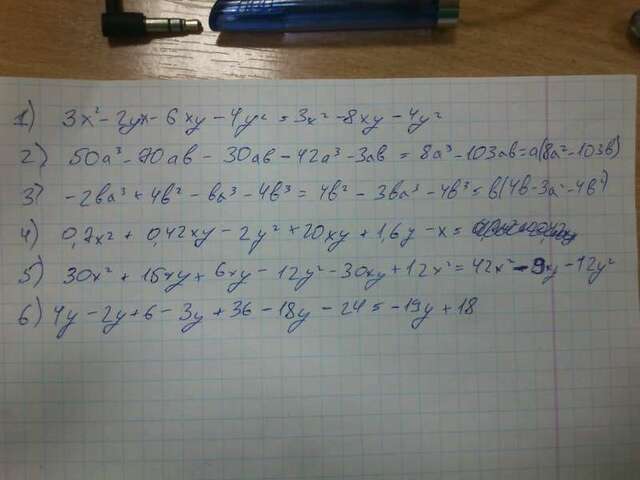 1) 3x² - 2yx - 6xy - 4y² = 3x² - 8xy - 4y²
2) 50a³ - 70ab - 30ab - 42a³ - 3ab = 8a³ - 103ab = a(8a² - 103b)
3) -2ba³ + 4b² - ba³ - 4b³ = 4b² - 3ba³ - 4b³ = b(4b - 3a³ - 4b²)
4) 0,7x² + 0,42xy - 2y² + 20xy + 1,6y - x =
5) 30x² + 15xy + 6xy - 12y² - 30xy + 12x² = 42x² - 9xy - 12y²
6) 4y - 2y + 6 - 3y + 36 - 18y - 24 = -19y + 18